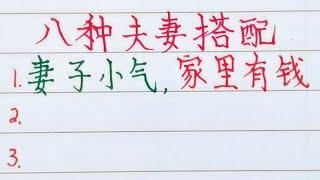 八种夫妻搭配
1.妻子小气,家里有钱
2.
3.